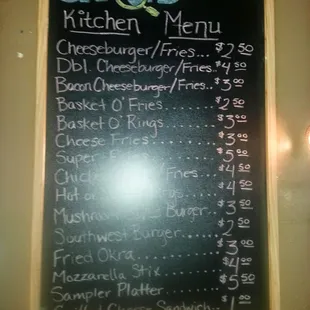 Kitchen Menu
Cheeseburger/Fries... $2.50
Dbl. Cheeseburger/Fries.. $4.50
Bacon Cheeseburger/Fries.. $3.00
Basket O' Fries........ $2.50
Basket O' Rings........ $3.00
Cheese Fries......... $3.00
Super $5.00
Fries.. $4.50
$4.50
Burger.. $3.50
Southwest Burger.... $2.50
Fried Okra....... $3.00
Mozzarella Stix...... $4.50
Sampler Platter...... $5.50
Cheese Sandwich.. $1.00